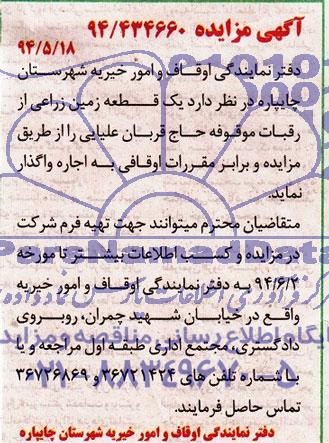 آگهی مزایده ۹۴/۴۳۴۶۶۰
۹۴/۵/۱۸
دفتر نمایندگی اوقاف و امور خیریه شهرستان
چایپاره در نظر دارد یک قطعه زمین زراعی از
رقبات موقوفه حاج قربان علیایی را از طریق
مزایده و برابر مقررات اوقافی به اجاره واگذار
نماید.
متقاضیان محترم میتوانند جهت تهیه فرم شرکت
در مزایده و کسب اطلاعات بیشتر تا مورخه
۹۴/۶/۲ به دفتر نمایندگی اوقاف و امور خیریه
واقع در خیابان شهید چمران، روبروی
دادگستری، مجتمع اداری طبقه اول مراجعه و یا
با شماره تلفن های ۳۶۷۲۱۴۲۴ و ۳۶۷۲۶۸۶۹
تماس حاصل فرمایند.
دفتر نمایندگی اوقاف و امور خیریه شهرستان چایپاره